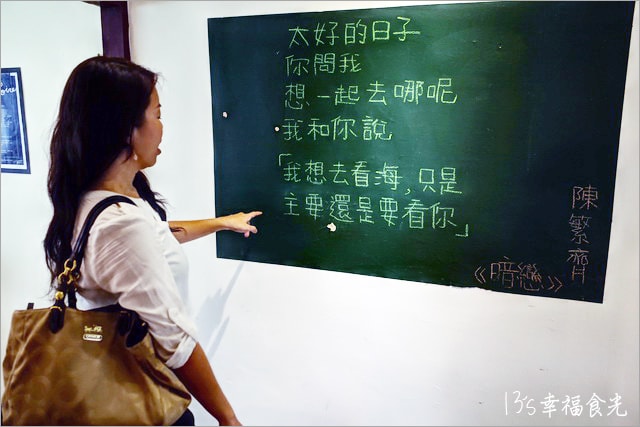 太好的日子
你問我
想一起去哪呢
我和你說
「我想去看海,只是
主要還是要看你」
《暗戀》
陳繁齊
13's幸福食光